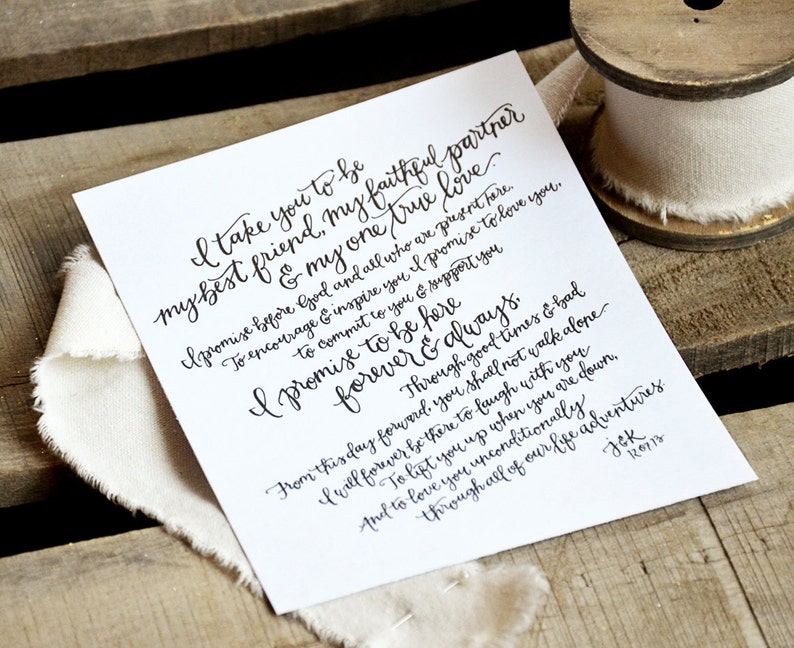 I take you to be
my best friend, my faithful partner
& my one true love.
I promise before God and all who are present here,
To encourage & inspire you I promise to love you,
to commit to you & support you
I promise to be here
forever & always,
Through good times & bad
From this day forward, you shall not walk alone
I will forever be there to laugh with you
To lift you up when you are down,
And to love you unconditionally
through all of our life adventures.
J&K
12.07.13